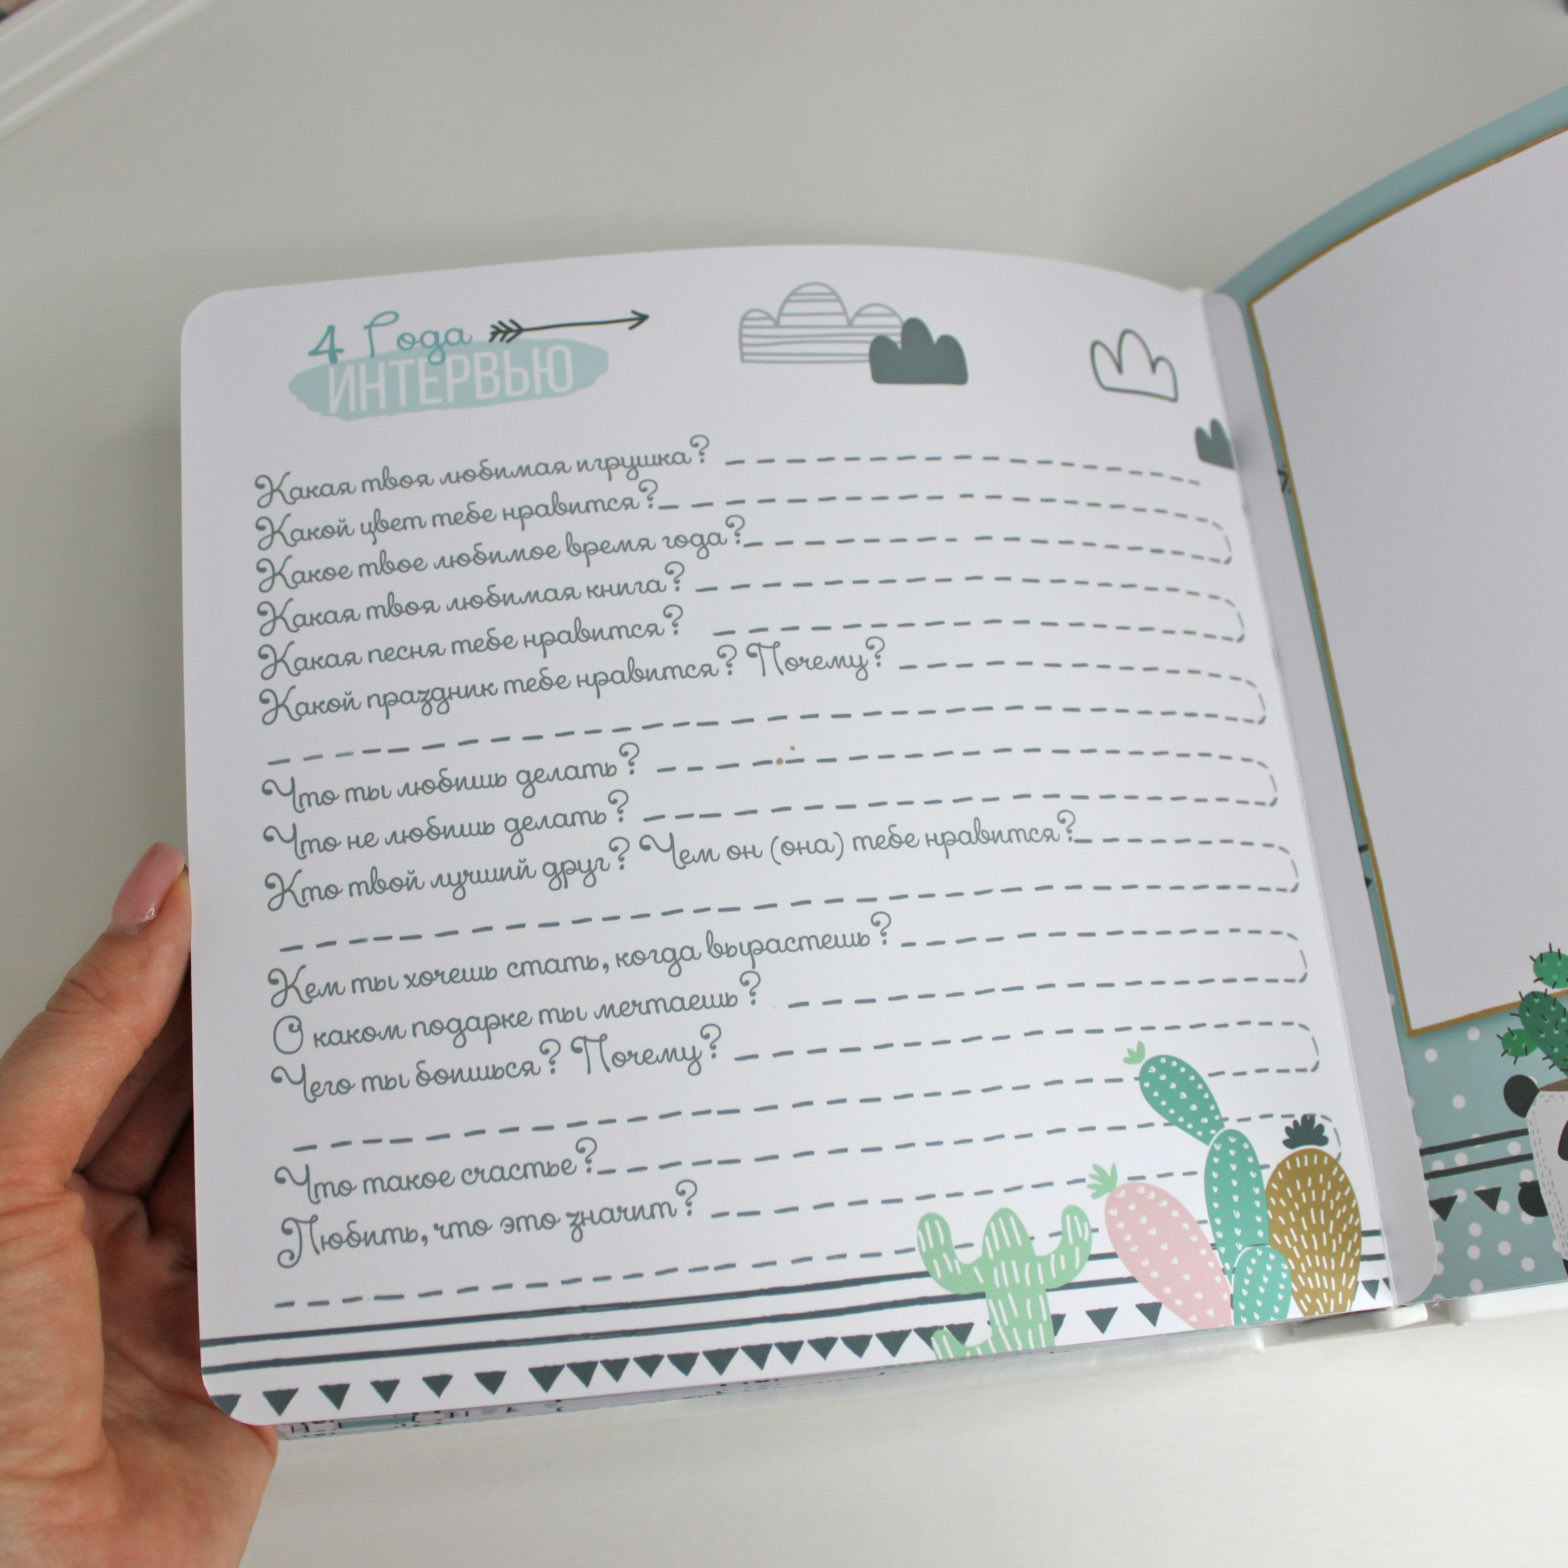 4 Года
ИНТЕРВЬЮ
Какая твоя любимая игрушка?
Какой цвет тебе нравится?
Какое твое любимое время года?
Какая твоя любимая книга?
Какая песня тебе нравится?
Какой праздник тебе нравится? Почему?
Что ты любишь делать?
Что не любишь делать?
Кто твой лучший друг? Чем он (она) тебе нравится?
Кем ты хочешь стать, когда вырастешь?
О каком подарке ты мечтаешь?
Чего ты боишься? Почему?
Что такое счастье?
Любить, что это значит?